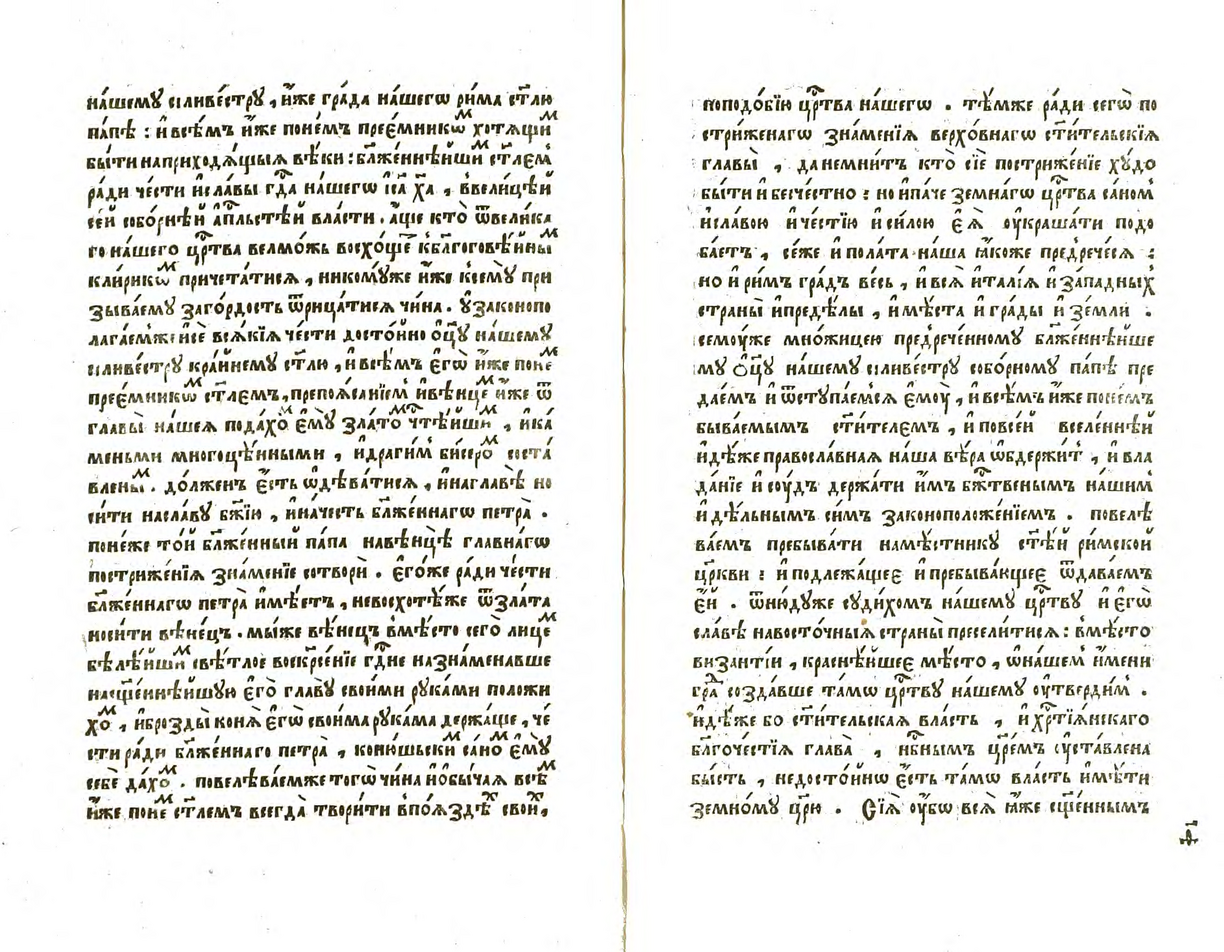 на́шемꙋ силиве́стрꙋ , и҆́же гра́да на́шегѡ ри́ма ст҃лю
па́пѣ : и҆ всѣ́мъ и҆́же поне́мъ прее́мникѡⷨ хотѧ́щиⷨ
бы́ти наприходѧ́щыѧ вѣ́ки : бл҃же́ннѣйшиⷨ ст҃лемъ
ра́ди че́сти и҆ сла́вы гд҃а на́шегѡ і҆с҃а х҃а , ввели́цѣй
се́й собо́рнѣй а҆пⷭ҇льстѣй вла́сти . а҆́ще кто̀ ѿвели́ка
го на́шего црⷭ҇тва велмо́жь восхо́щеⷮ кблагоговѣ́йныⷨ
кли́рикѡⷨ причета́тисѧ , никомꙋ́же и҆́же ксемꙋ̀ при
зыва́емꙋ заго́рдость ѿрица́тисѧ чи́на . ᲂу҆законопо
лага́емже и҆ сѐ всѧ́кїѧ че́сти досто́йно ѻ҆ц҃ꙋ на́шемꙋ
силиве́стрꙋ кра́йнемꙋ ст҃лю , и҆ всѣ́мъ є҆гѡ̀ и҆́же понеⷨ
прее́мникѡⷨ ст҃лемъ , препоѧ́санїем̾ и҆ вѣнце́ⷨ и҆́же ѿ
главы̀ на́шеѧ пода́хоⷨ є҆мꙋ̀ зла́тоⷨ чⷭ҇тѣ́йшиⷨ , и҆ ка́
меньми многоцѣ́нными , и҆ драги́м̾ би́серо́ⷨ соста́
вле́ныⷨ . до́лженъ є҆́сть ѡ҆дѣва́тисѧ , и҆ наглавѣ̀ но
си́ти насла́вꙋ бж҃їю , и҆ наче́сть бл҃же́ннагѡ петра̀ .
поне́же то́й бл҃же́нный па́па навѣнцѣ̀ главна́гѡ
постриже́нїѧ зна́менїе сотворѝ . є҆гѡ́же ра́ди че́сти
бл҃же́ннагѡ петра̀ и҆мѣ́етъ , невосхотѣ́же ѿзла́та
носи́ти вѣне́цъ . мы́же вѣне́цъ вмѣ́сто сегѡ̀ лице́ⷨ
бѣлѣ́йшиⷨ свѣ́тлое воскресе́нїе гдⷭ҇не назна́менавше
насщ҃е́ннѣйшꙋю є҆гѡ̀ главꙋ̀ свои́ми рꙋка́ми положи́
хоⷨ , и҆ брозды̀ конѧ̀ є҆гѡ̀ свои́ма рꙋка́ма держа́ще , че́
сти ра́ди бл҃же́ннаго петра̀ , коню́шьскиⷨ са́ноⷨ є҆мꙋ̀
себѐ да́хоⷨ . повелѣва́емже тогѡ̀ чи́на и҆ ѻ҆бы́чаѧ всѣⷨ
и҆́же понеⷨ ст҃лемъ всегда̀ твори́ти впоѧ́здѣⷯ свои́ⷯ ,
поподо́бїю црⷭ҇тва на́шегѡ . тѣ́мже ра́ди сегѡ̀ по
стриже́нагѡ зна́менїѧ верхо́внагѡ ст҃и́тельскїѧ
главы̀ , данемни́тъ кто̀ сїѐ пострижє́нїе хꙋ́до
бы́ти и҆ бесче́стно : но и҆ па́че земна́гѡ црⷭ҇тва са́ном̾
и҆ сла́вою и҆ че́стїю и҆ си́лою є҆ѧ̀ ᲂу҆краша́ти подо
ба́етъ , се́же и҆ пола́та на́ша ꙗ҆́коже предрече́сѧ :
но и҆ ри́мъ гра́дъ ве́сь , и҆ всѧ̀ и҆талі́ѧ и҆ за́падныⷯ
страны̀ и҆ предѣ́лы , и҆ мѣ́ста и҆ гра́ды и҆ зе́мли .
семꙋ́же мно́жицею предрече́нномꙋ бл҃же́ннѣйше
мꙋ ѻ҆ц҃ꙋ̀ на́шемꙋ силиве́стрꙋ собо́рномꙋ па́пѣ пре
дае́мъ и҆ ѿстꙋпа́емсѧ є҆мꙋ̀ , и҆ всѣ́мъ и҆́же поне́мъ
быва́емымъ ст҃и́телемъ , и҆ повсе́й вселе́ннѣй
и҆дѣ́же правосла́внаѧ на́ша вѣ́ра ѡ҆бдержи́т̾ , и҆ вла
да́нїе и҆ сꙋ́дъ держа́ти и҆́мъ бжⷭ҇твенымъ на́шим̾
и҆ дѣ́льнымъ си́мъ законоположе́нїемъ . повелѣ
ва́емъ пребыва́ти намѣ́стникꙋ ст҃ѣ́й ри́мской
цр҃кви : и҆ подлежа́щее и҆ пребыва́ющее ѿдава́емъ
є҆́й . ѿнидꙋ́же сꙋди́хомъ на́шемꙋ црⷭ҇твꙋ и҆ є҆гѡ̀
сла́вѣ навосто́чныѧ страны̀ пресели́тисѧ : вмѣ́сто
византі́и , краснѣ́йшее мѣ́сто , ѡ҆ на́шем̾ и҆́мени
граⷣ созда́вше та́мѡ црⷭ҇твꙋ на́шемꙋ ᲂу҆тверди́м̾ .
и҆дѣ́же бо ст҃и́тельскаѧ вла́сть , и҆ хрⷭ҇тїа́нскаго
бл҃гоче́стїѧ глава̀ , нб҃нымъ цр҃е́мъ ᲂу҆ста́влена
бы́сть , недосто́йнѡ є҆́сть та́мѡ вла́сть и҆мѣ́ти
земно́мꙋ цр҃ю̀ . Сїѧ̀ ᲂу҆́бѡ всѧ̀ ꙗ҆́же сщ҃е́ннымъ